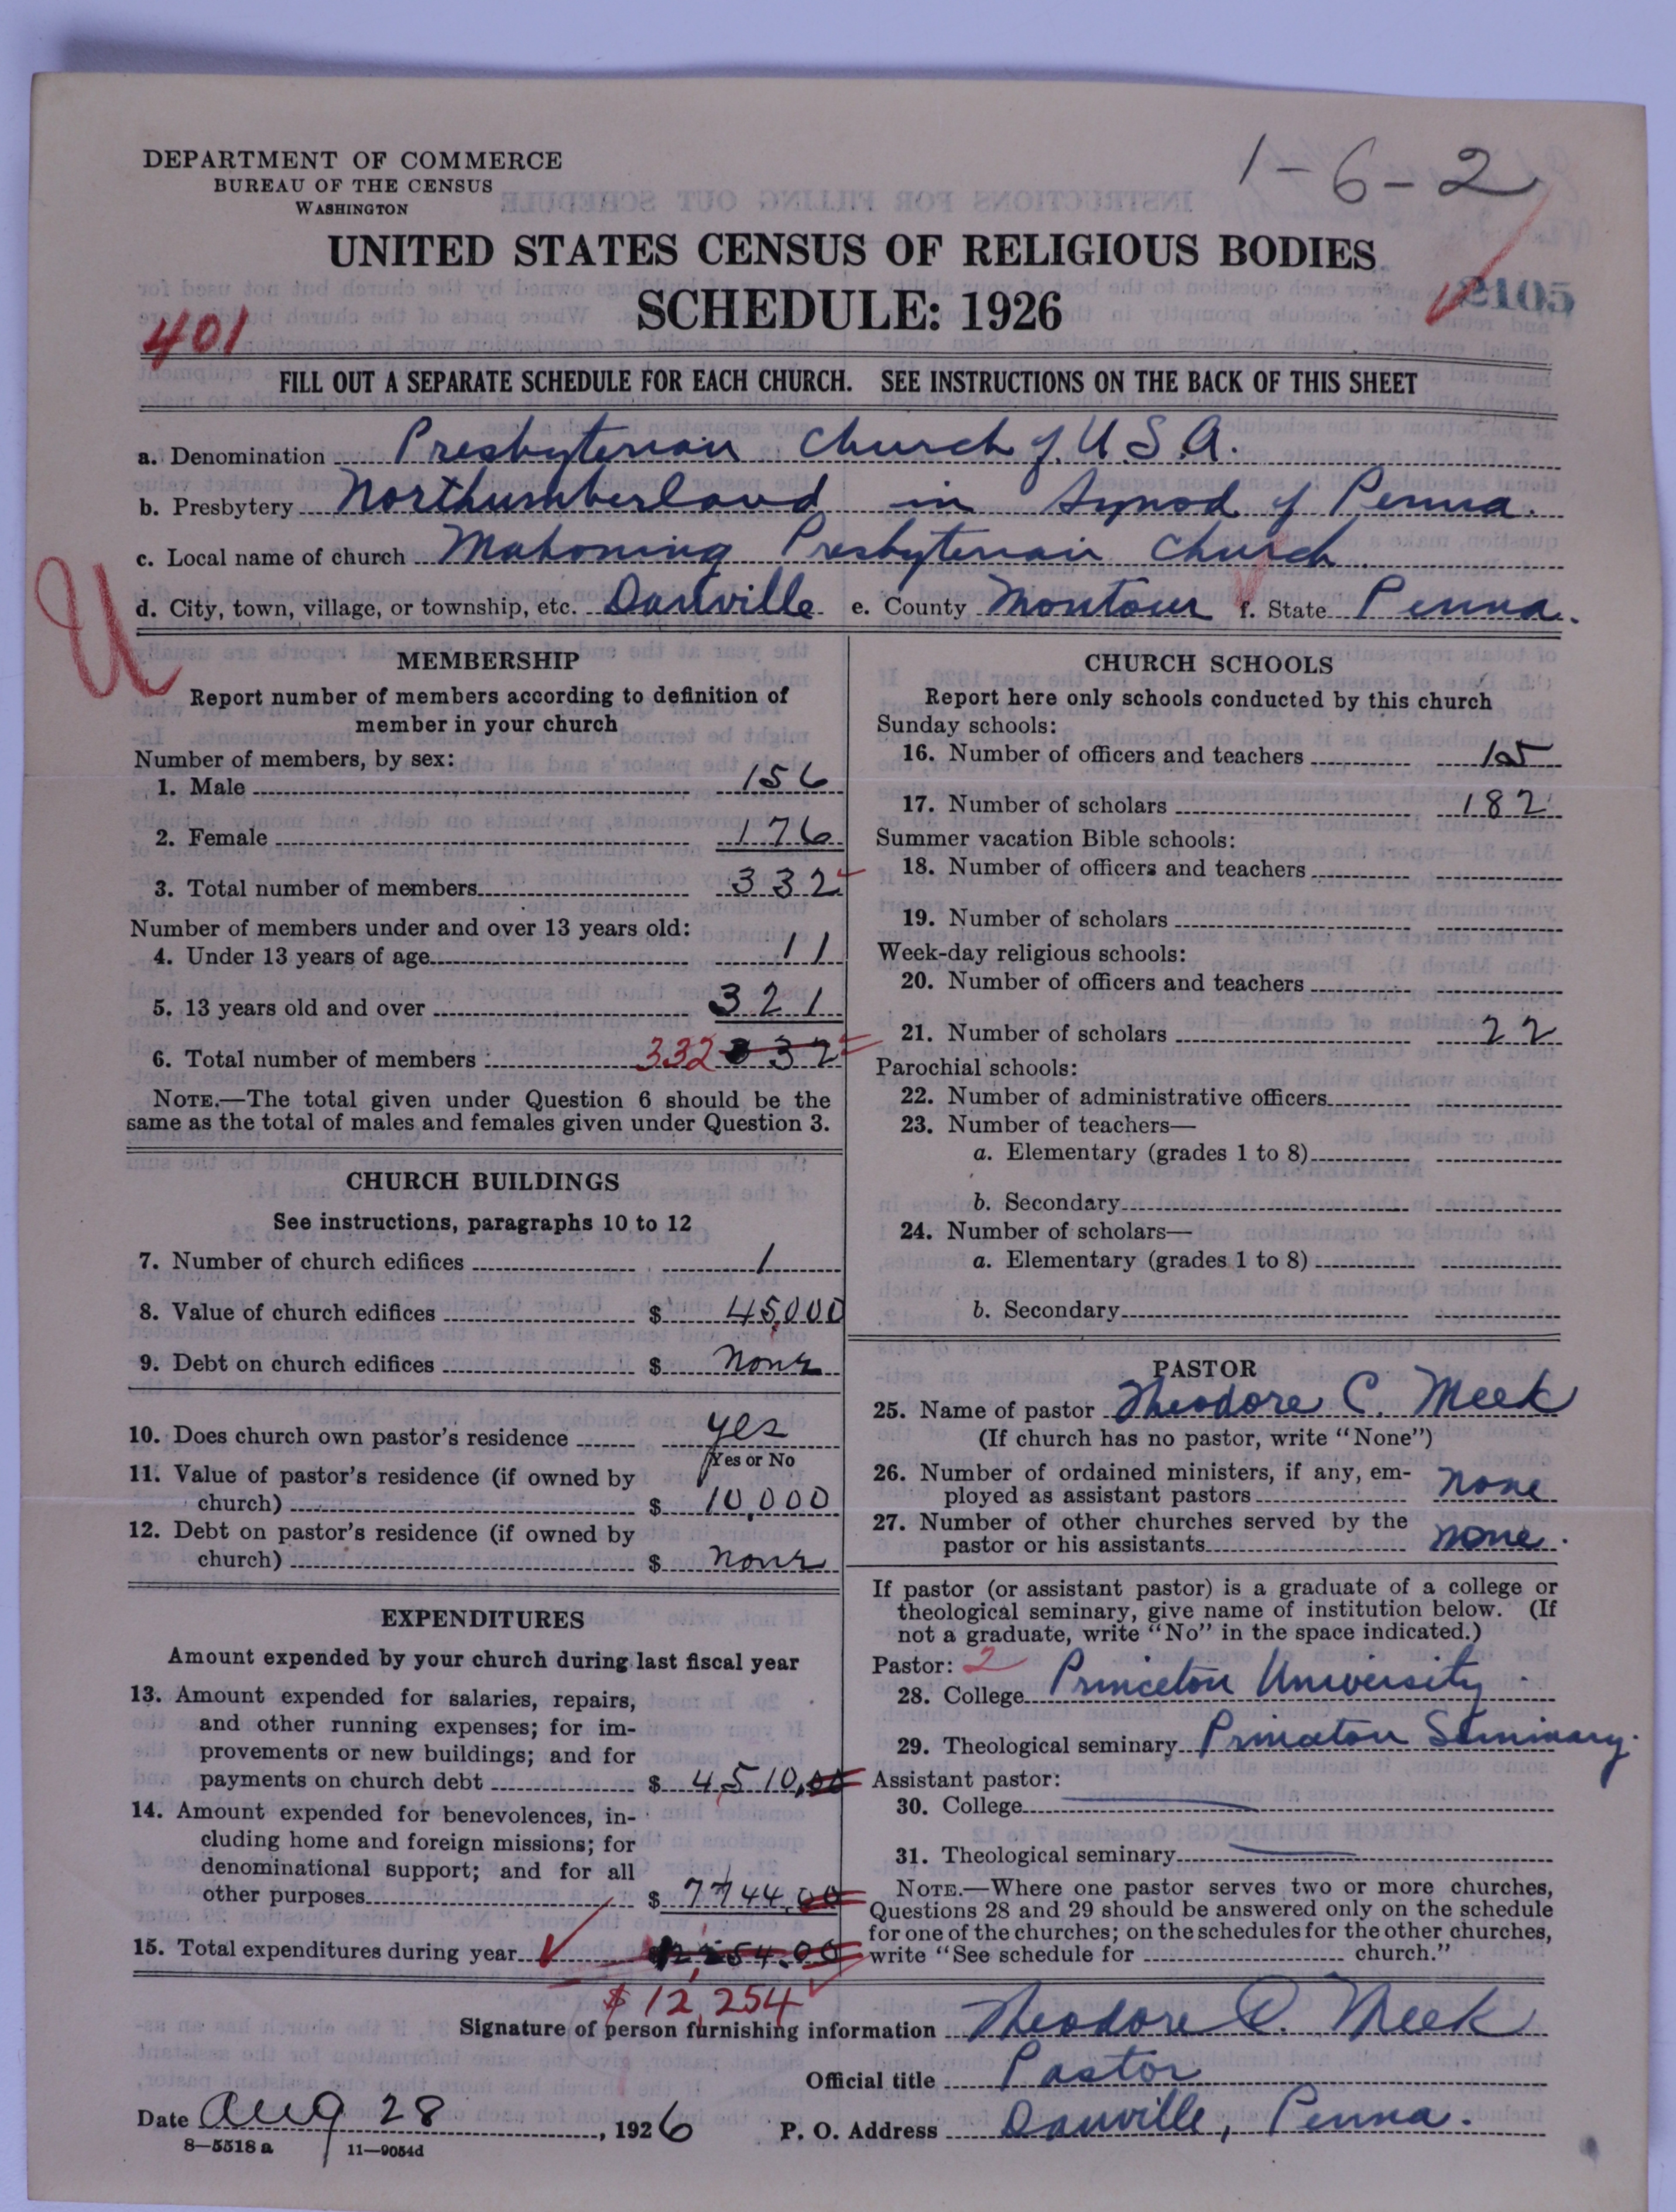 1-6-2
DEPARTMENT OF COMMERCE
BUREAU OF THE CENSUS
WASHINGTON
UNITED STATES CENSUS OF RELIGIOUS BODIES
SCHEDULE: 1926
2105
401
FILL OUT A SEPARATE SCHEDULE FOR EACH CHURCH. SEE INSTRUCTIONS ON THE BACK OF THIS SHEET
a. Denomination Presbyterian Church of U.S.A.
b. Presbytery Northumberland in Synod of Penna.
c. Local name of church Mahoning Presbyterian Church
d. City, town, village, or township, etc. Danville e. County Montour f. State Penna.
U
MEMBERSHIP
Report number of members according to definition of
member in your church
Number of members, by sex:
1. Male 156
2. Female 176
3. Total number of members 332
Number of members under and over 13 years old:
4. Under 13 years of age 11
5. 13 years old and over 321
6. Total number of members 332 332
NOTE.—The total given under Question 6 should be the
same as the total of males and females given under Question 3.
CHURCH BUILDINGS
See instructions, paragraphs 10 to 12
7. Number of church edifices 1
8. Value of church edifices $ 45,000
9. Debt on church edifices $ none
10. Does church own pastor's residence yes
Yes or No
11. Value of pastor's residence (if owned by
church) $ 10,000
12. Debt on pastor's residence (if owned by
church) $ none
EXPENDITURES
Amount expended by your church during last fiscal year
13. Amount expended for salaries, repairs,
and other running expenses; for im-
provements or new buildings; and for
payments on church debt $ 4,510.00
14. Amount expended for benevolences, in-
cluding home and foreign missions; for
denominational support; and for all
other purposes $ 7744.00
15. Total expenditures during year 12,254.00
$12,254
CHURCH SCHOOLS
Report here only schools conducted by this church
Sunday schools:
16. Number of officers and teachers 15
17. Number of scholars 182
Summer vacation Bible schools:
18. Number of officers and teachers
19. Number of scholars
Week-day religious schools:
20. Number of officers and teachers
21. Number of scholars 22
Parochial schools:
22. Number of administrative officers
23. Number of teachers—
a. Elementary (grades 1 to 8)
b. Secondary
24. Number of scholars—
a. Elementary (grades 1 to 8)
b. Secondary
PASTOR
25. Name of pastor Theodore C. Meek
(If church has no pastor, write "None")
26. Number of ordained ministers, if any, em-
ployed as assistant pastors none
27. Number of other churches served by the
pastor or his assistants none.
If pastor (or assistant pastor) is a graduate of a college or
theological seminary, give name of institution below. (If
not a graduate, write "No" in the space indicated.)
Pastor: 2
28. College Princeton University
29. Theological seminary Princeton Seminary.
Assistant pastor:
30. College
31. Theological seminary
NOTE.—Where one pastor serves two or more churches,
Questions 28 and 29 should be answered only on the schedule
for one of the churches; on the schedules for the other churches,
write "See schedule for church."
Signature of person furnishing information Theodore C. Meek
Official title Pastor
Date Aug 28, 1926 P. O. Address Danville, Penna.
8—5518 a 11—9054d